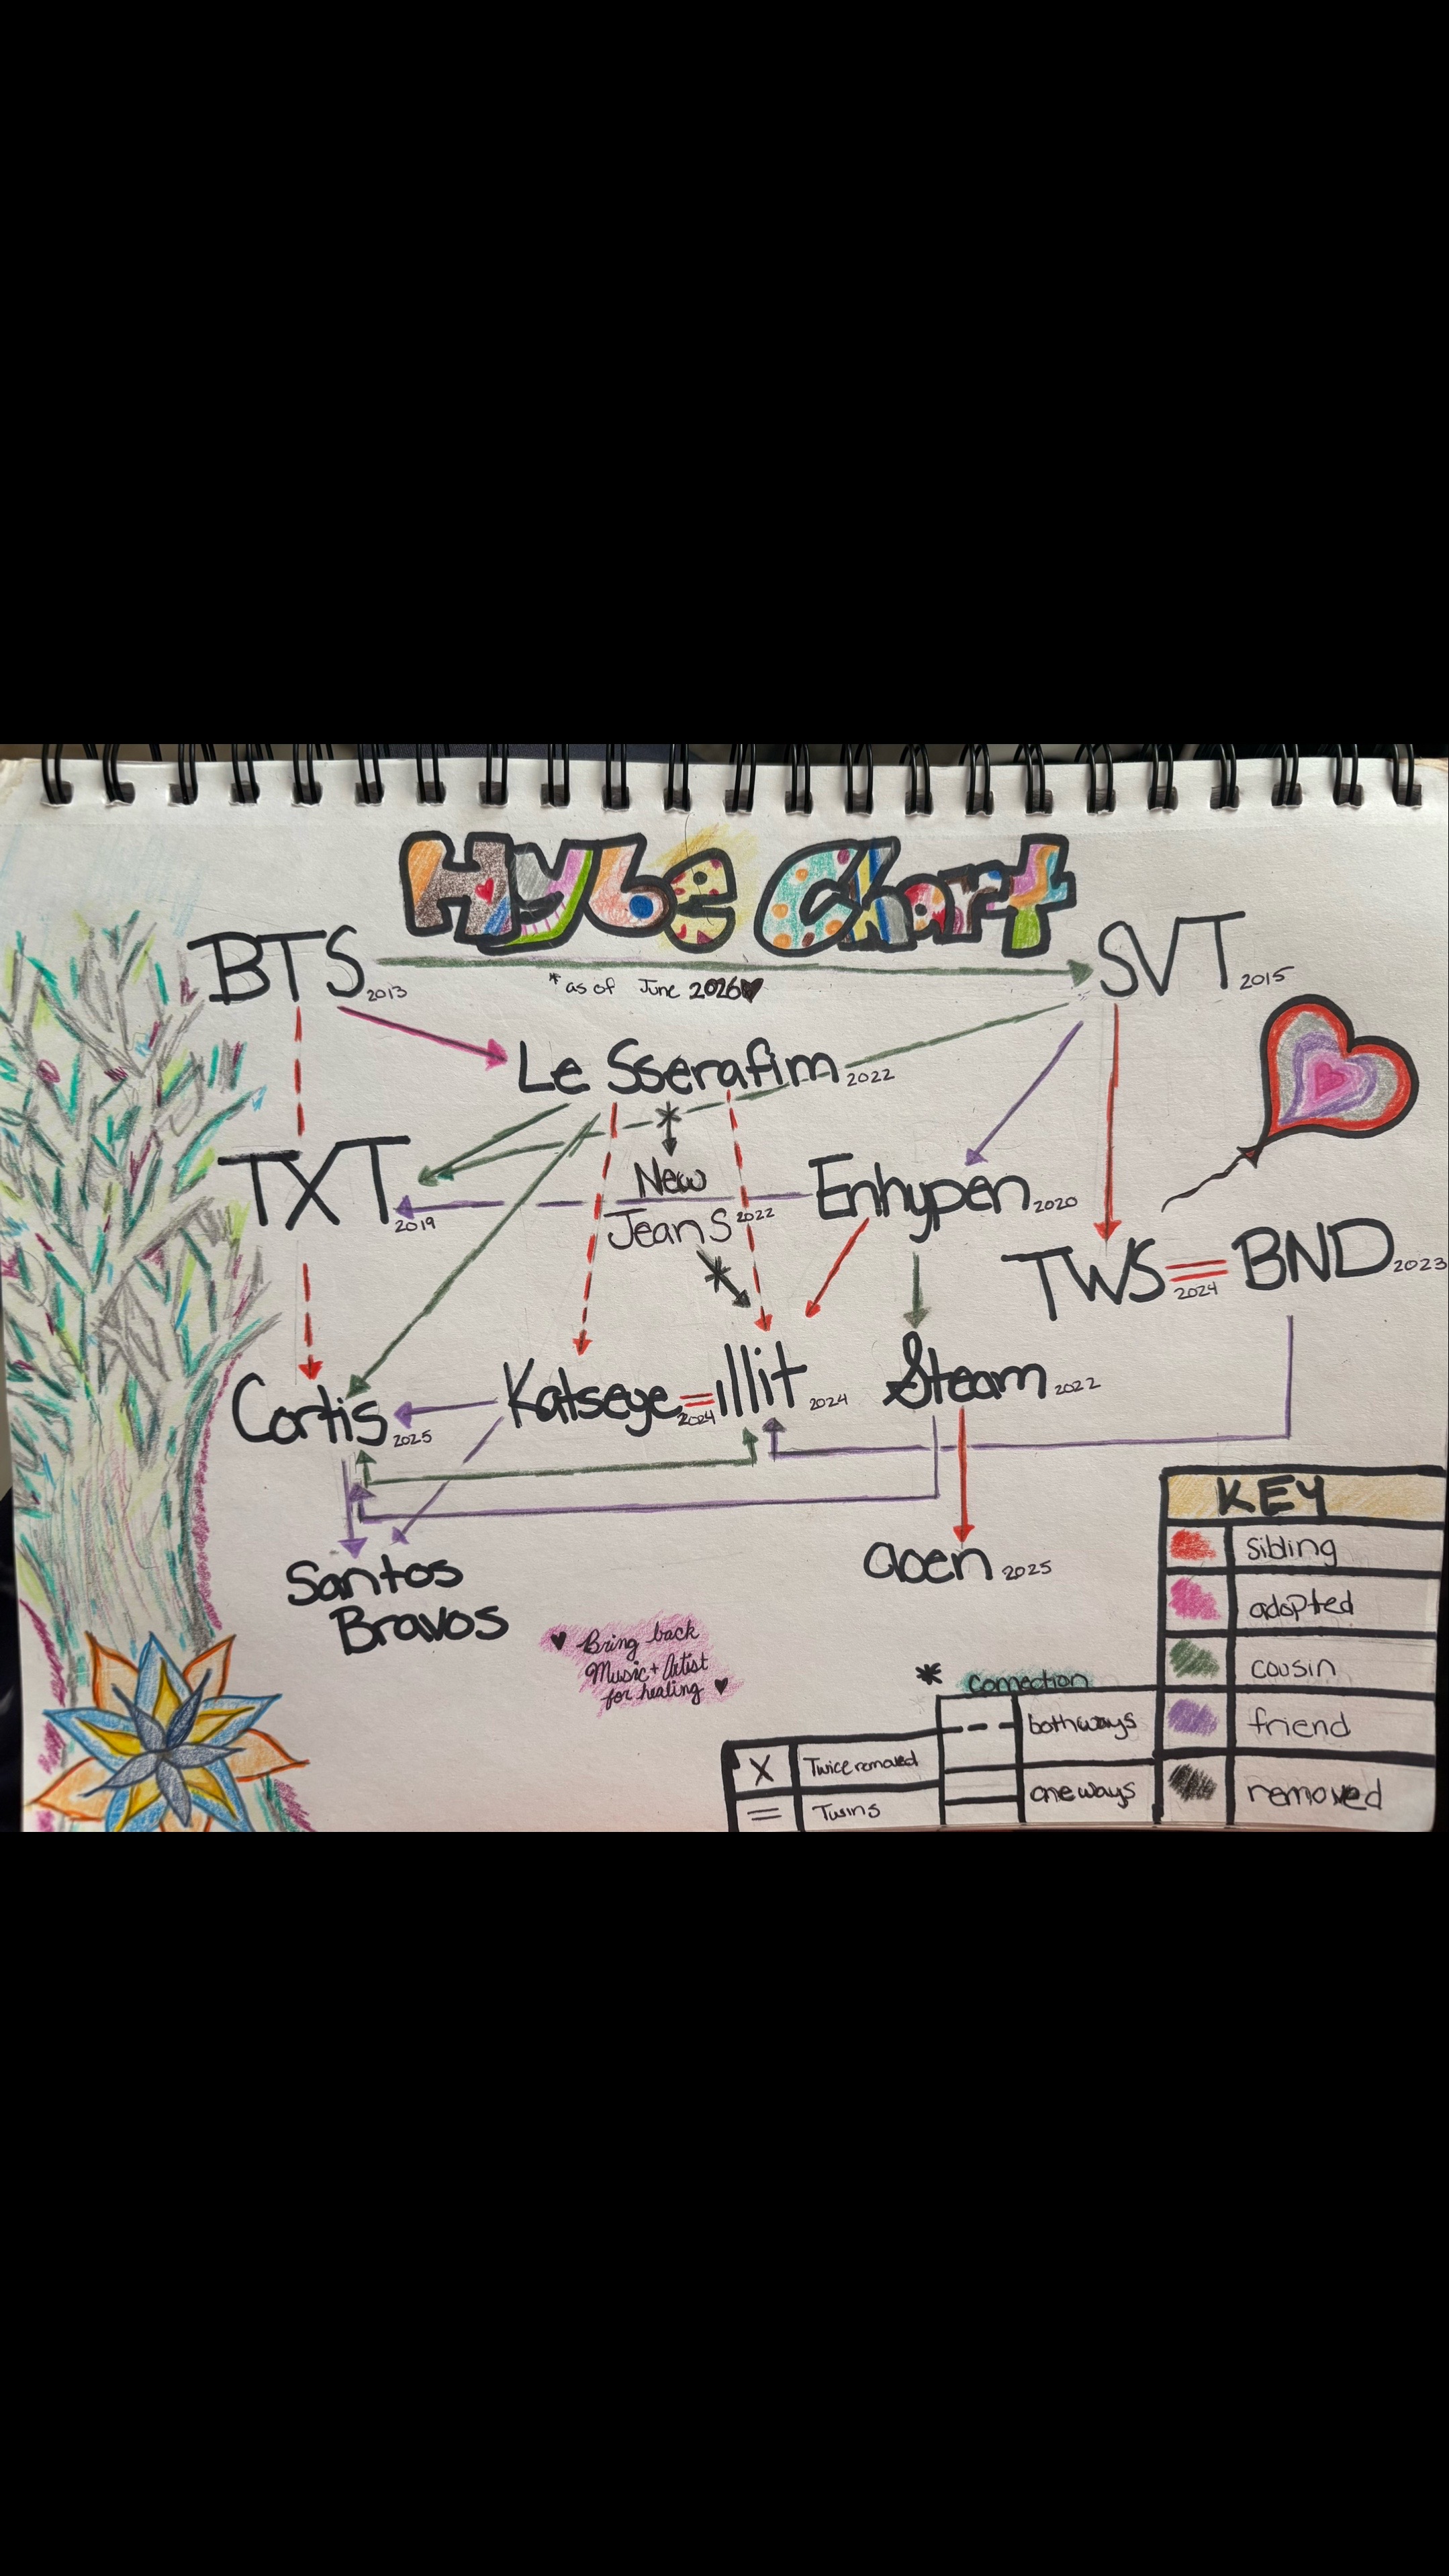 Hybe Chart
BTS 2013
SVT 2015
*as of June 2026
Le Sserafim 2022
TXT 2019
New
Jeans 2022
Enhypen 2020
TWS = BND 2023
2024
Cortis 2025
Katseye = illit 2024
2024
&team 2022
Santos
Bravos
aoen 2025
Bring back
Music + Artist
for healing
KEY
sibling
adopted
cousin
friend
removed
* connection
both ways
one ways
X Twice removed
= Twins